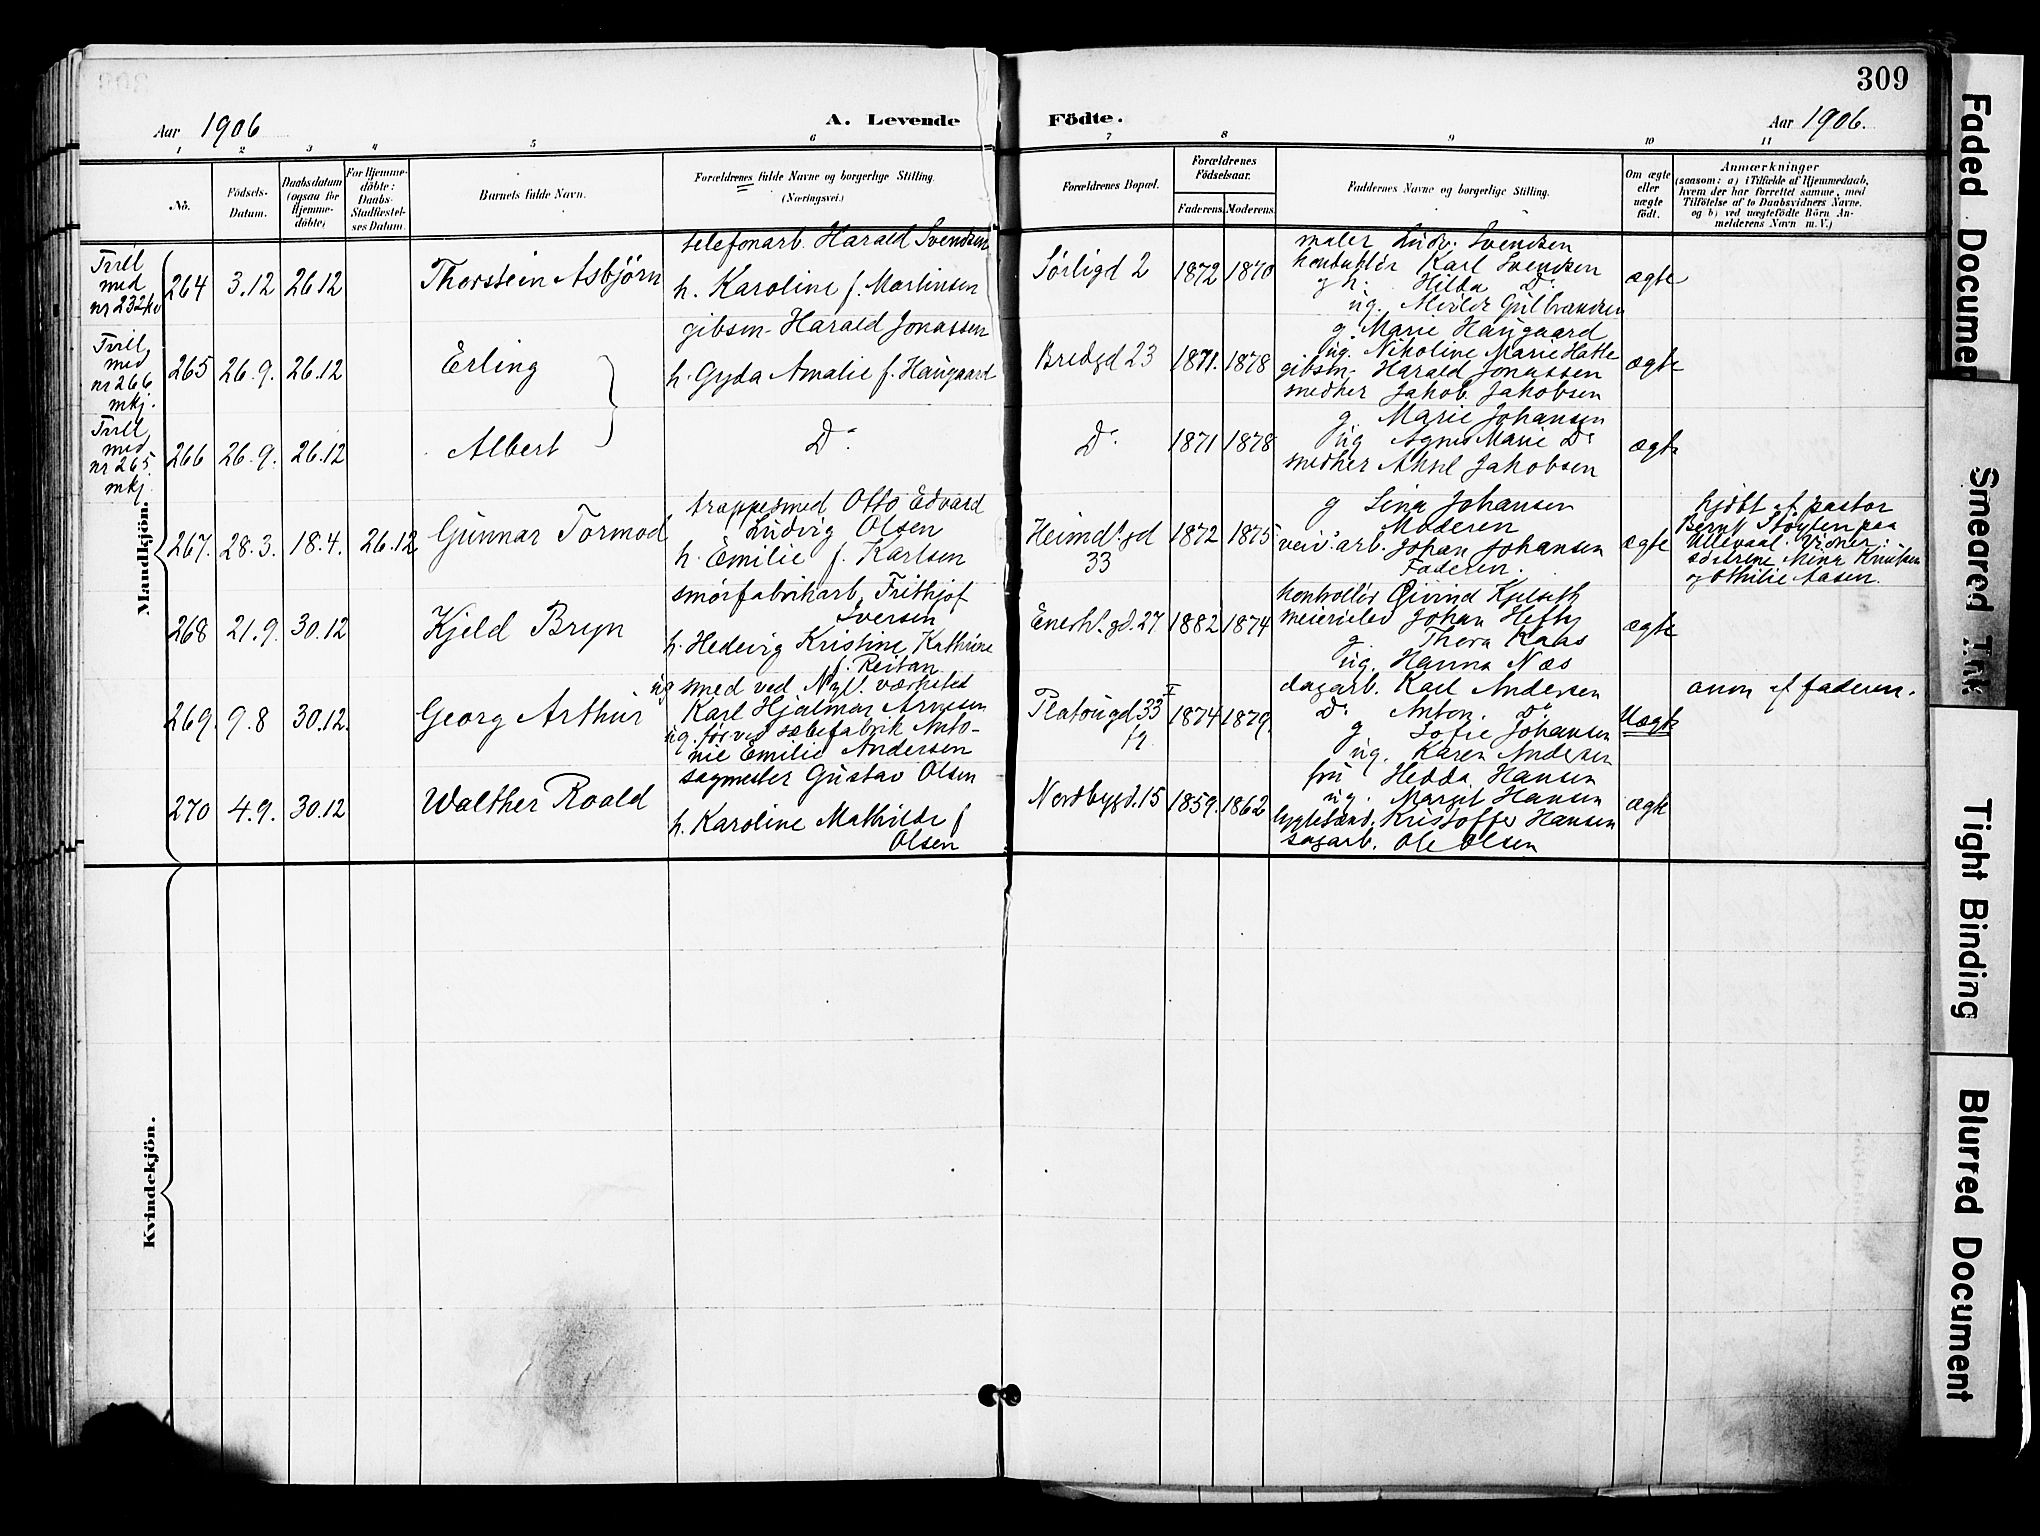 309
Aar 1906
A. Levende
Födte.
Aar 1906.
1 2 3 4 5 6 7 8 9 10 11
No.
Födsels-
Datum.
Daabsdatum
(ogsaa for
Hjemme-
döbte)
For Hjemme-
döbte:
Daabs-
Stadfæstel-
ses Datum.
Barnets fulde Navn.
Forældrenes fulde Navne og borgerlige Stilling.
(Næringsvei.)
Forældrenes Bopæl.
Forældrenes
Födselsaar.
Faderens.
Moderens.
Faddernes Navne og borgerlige Stilling.
Om ægte
eller
uægte
født.
Anmærkninger
(saasom: a) i Tilfælde af Hjemmedaab,
hvem der har forrettet samme, med
Tilföielse af to Daabsvidners Navne.
og b) ved uægtefödte Börn An-
melderens Navn m. V.)
Mandkjön.
Tvill
med
nr 232 kv
264
3.12
26.12
Thorstein Asbjörn
telefonarb. Harald Svendsen
h. Karoline f. Martinsen
Sørligd 2
1872
1870
maler Ludv. Svendsen
Karl Svendsen
g h. Hilda Do
ug. Gulbrandsen
ægte
Tvill
med
nr 266
mkj.
265
26.9.
26.12
Erling
gibsm. Harald Jonassen
h. Gyda Amalie f. Haugaard
Bredgd 23
1871.
1878
g Marie Haugaard
ug. Nikoline Marie Hatle
gibsm. Harald Jonassen
snedker Jakob Jakobsen
ægte
Tvill
med
nr 265
mkj.
266
26.9.
26.12
Albert
Do
Do
1871
1878
g. Marie Johansen
ug Agnes Marie Do
snedker Aksel Jakobsen
ægte
267.
28.3.
18.4.
26.12
Gunnar Tormod
trappesmed Otto Edvard
Ludvig Olsen
h. Emilie f. Karlsen
Heimdl. gd
33
1872
1875
g Lina Johansen
Moderen
veiv. arb. Johan Johansen
Faderen.
ægte
hjdbt af pastor
Bernt Støylen paa
Ullevaal. Vidner:
søstrene Mina Knutsen
og Othilie Aasen.
268
21.9.
30.12
Kjeld Bryn
smørfabrikarb. Frithjof
Iversen
h. Hedevig Kristine Kathrine
f. Reitan
Enerh. gd. 27
1882
1874
kontrollör Eivind
meierielev Johan Hefty
g. Thora Kaas
ug. Hanna Næs
ægte
269.
9.8
30.12.
Georg Arthur
ug smed ved Nyl. værksted
Karl Hjalmar Arnesen
ug. før ved sæbefabrik Anto-
nie Emilie Andersen
Platougd 33
1874
1879.
dagarb. Karl Andersen
Do Anton. Do
g Sofie Johansen
ug. Karen Andersen
Uægte
anm af faderen.
270
4.9.
30.12
Walther Roald
sagmester Gustav Olsen
h. Karoline Mathilde f
Olsen
Nordbygd. 15
1859.
1862
fru Hedda Hansen
ug. Margit Hansen
lygtetænd. Kristoffer Hansen
sagarb. Ole Olsen
ægte
Kvindekjön.
Faded Document
Smeared Ink
Tight Binding
Blurred Document